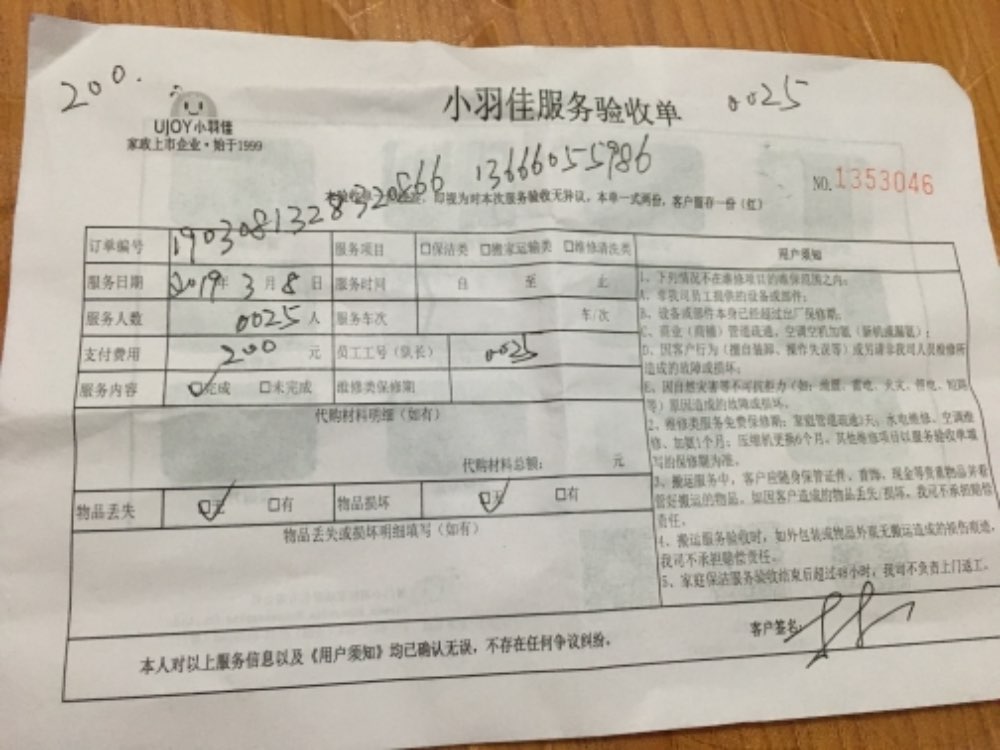 200.
小羽佳服务验收单
0025
UJOY小羽佳
家政上市企业·始于1999
13666055986
NO.1353046
即视为对本次服务验收无异议，本单一式两份，客户留存一份（红）
订单编号 1903081328320866 服务项目 □保洁类 □搬家运输类 □维修清洗类 用户须知
服务日期 2019年3月8日 服务时间 自 至 止
服务人数 0025人 服务车次 车/次
支付费用 200 元 员工工号（队长） 0025
服务内容 ☑完成 □未完成 维修类保修期
代购材料明细（如有）
代购材料总额： 元
物品丢失 ☑无 □有 物品损坏 ☑无 □有
物品丢失或损坏明细填写（如有）
1、下列情况不在维修项目的维保范围之内：
A、非我司员工提供的设备或部件；
B、设备或部件本身已经超过出厂保修期；
C、商业（商铺）管道疏通，空调空机加氨（新机或漏氨）；
D、因客户行为（擅自装卸、操作失误等）或另请非我司人员维修所
造成的故障或损坏；
E、因自然灾害等不可抗拒力（如：地震、雷电、火灾、停电、短路
等）原因造成的故障或损坏。
2、维修类服务免费保修期：家庭管道疏通3天；水电维修、空调维
修、加氨1个月；压缩机更换6个月。其他维修项目以服务验收单填
写的保修期为准。
3、搬运服务中，客户应随身保管证件、首饰、现金等贵重物品并看
管好搬运的物品。如因客户造成的物品丢失/损坏，我司不承担赔偿
责任。
4、搬运服务验收时，如外包装或物品外观无搬运造成的损伤痕迹，
我司不承担赔偿责任。
5、家庭保洁服务验收结束后超过48小时，我司不负责上门返工。
客户签名：
本人对以上服务信息以及《用户须知》均已确认无误，不存在任何争议纠纷。